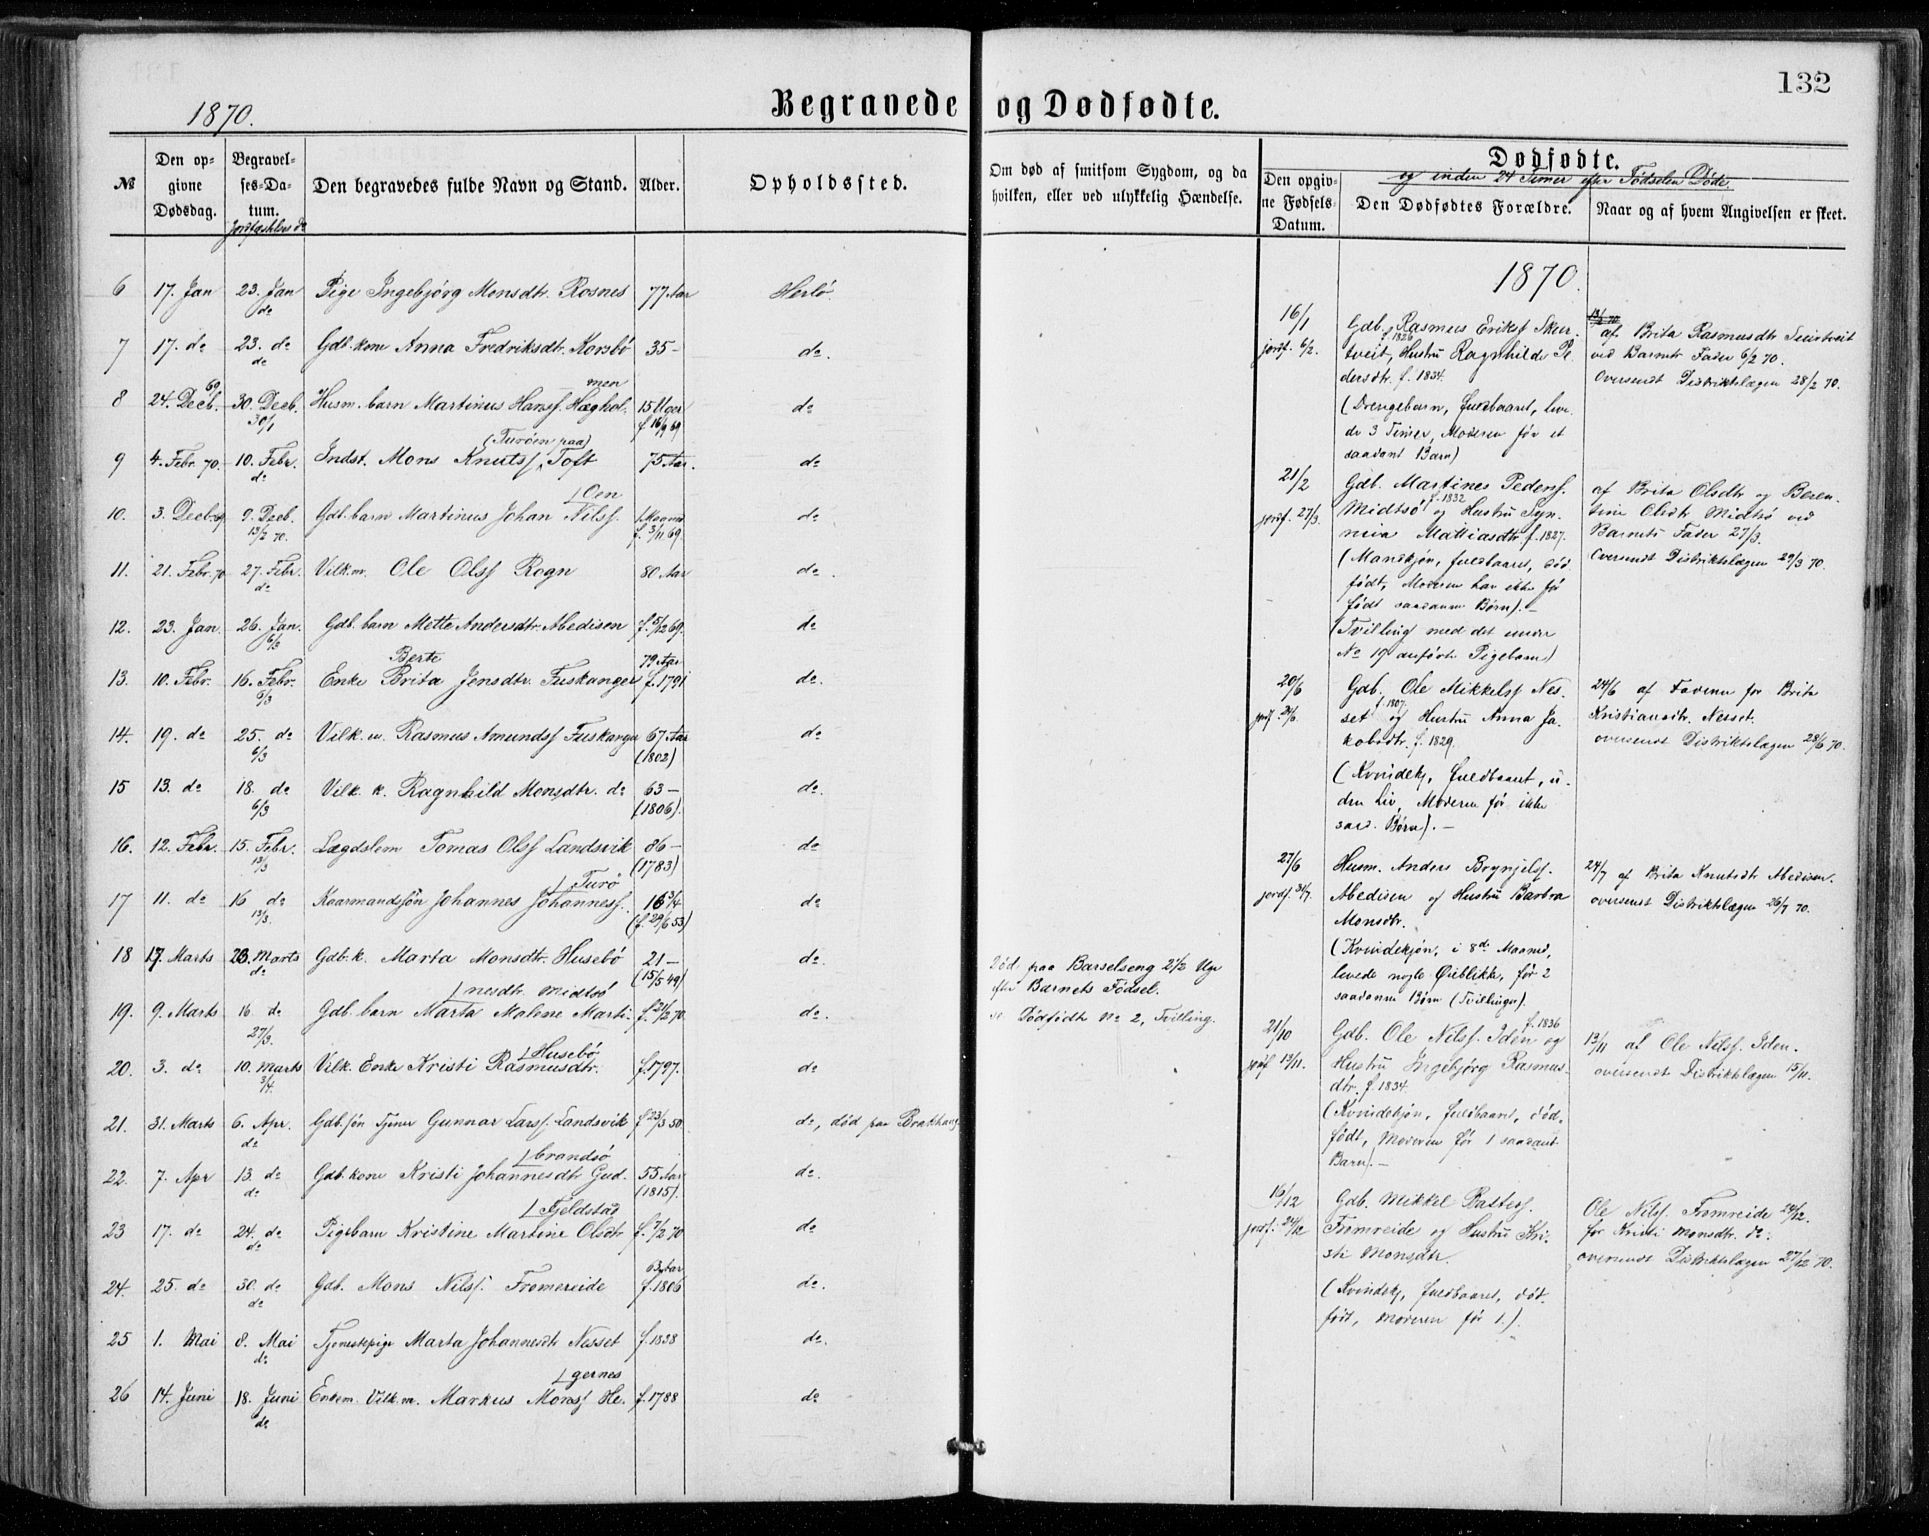 132
1870.
Begravede og Dødfødte.
№
Den opgivne Dødsdag.
Begravelses-Datum.
Jordfæstelses do
Den begravedes fulde Navn og Stand.
Alder.
Opholdssted.
Om død af smitsom Sygdom, og da hvilken, eller ved ulykkelig Hændelse.
Dødfødte.
og inden 24 Timer efter Fødselen Døde.
Den opgivne Fødsels-Datum.
Den Dødfødtes Forældre.
Naar og af hvem Angivelsen er skeet.
6 17. Jan 23. Jan do Pige Ingebjørg Monsdtr. Rosnes 77 Aar Herlø.
7 17. do 23. do do Gdb. kone Anna Fredriksdtr. Korsbø 35 – do.
8 24. Decb. 69 30. Decb. 30/1 Husm. barn Martinus Hanss. Hæghol-men 15 Uger f. 16/9 69 do
9 4. Febr. 70. 10. Febr. do Indst. Mons Knutss. (Turöen paa) Toft 75 Aar. do
10. 3. Decb. 69 9. Decb. 13/2 70. Gdb. barn Martinus Johan Nilss. Oen 1 Maaned f. 3/11 69. do
11. 21. Febr. 70 27. Febr. do Vilk.m. Ole Olss Rogn 80 Aar do.
12. 23. Jan 26. Jan. 6/3 Gdb. barn Mette Andersdtr. Abedisen f. 5/12 69. do
13. 10. Febr. 16. Febr. 6/3 Enke Brita Berte Jensdtr. Fuskanger 79 Aar f. 1791 do.
14. 19. do 25. do 6/3 Vilk. m. Rasmus Amundss Fuskanger 67 Aar (1802) do
15 13. do 18. do 6/3 Vilk. k. Ragnhild Monsdtr. do 63 – (1806). do.
16. 12. Febr. 15. Febr. 13/3 Lægdslem Tomas Olss Landsvik 86 – (1783) do
17 11. do 16 do 13/3. Kaarmandssön Johannes Johanness. Turö 16 3/4 (f. 29/6 53) do
18 17. Marts 23. Marts do Gdb. k. Marta Monsdtr. Husebö 21 – (15/5 49) do. Död paa Barselseng 2 1/2 Uge
efter Barnets Födsel.
19. 9. Marts 16. do 27/3. Gdb. barn Marta Malene Marti-nesdtr. Midtsö f. 21/2 70. do. Dödfödte No 2, Tvilling.
20. 3. do 10. Marts 3/4. Vilk. Enke Kristi Rasmusdtr. Husebö f. 1797. do
21. 31. Marts 6. Apr. do Gdb. sön Tjener Gunnar Larss. Landsvik f 23/3 50. do, död paa
22. 7. Apr 13. do do Gdb. kone Kristi Johannesdtr Gud-brandsö 55 Aar (1815). do.
23 17. do 24. do do Pigebarn Kristine Martine Olsdtr Fjeldstad f. 7/2 70 do
24. 25. do 30. do do Gdb. Mons Nilss. Fromereide 63 Aar f. 1806 do.
25 1. Mai 8. Mai do Tjenestepige Marta Johannesdt Nesset f. 1838 do.
26 14. Juni 18. Juni do Enkem. Vilk. m. Markus Monss He-gernes f. 1788 do
1870.
16/1 jordf. 6/2.
Gdb. Rasmus Erikss Skur-
tveit, f. 1826 Hustru Ragnhilde Pe-
dersdtr. f. 1834.
(Drengebarn, fuldbaaret, leve-
de 3 Timer, Moderen før et
saadant Barn)
af Brita Rasmusdtr
ved Barnets Fader 6/2 70.
Oversendt Distriktslægen 28/2 70.
21/2 jordf. 27/3.
Gdb. Martines Pederss.
Midtsö f. 1832 og Hustru Syn-
neva Mattiasdtr. f. 1827.
(Mandkjön, fuldbaaret, död-
födt, Moderen har ikke för
födt saadanne Börn). –
(Tvilling med det under
No 19 anförte Pigebarn)
af Brita Olsdtr og Beren-
tine Olsdtr Midtsö ved
Barnets Fader 27/3.
Oversendt Distriktslægen 29/3 70.
20/6 jordf. 24/6.
Gdb. Ole Mikkelss Nes-
set f. 1807. og Hustru Anna Ja-
kobsdtr. f. 1829.
(Kvindekj, fuldbaaret, u-
den Liv, Moderen för ikke
saad. Börn). –
24/6 af Faderen for Brita
Kristiansdtr. Nesset.
oversendt Distriktslægen 28/6 70.
27/6 jordf. 31/7.
Husm. Anders Brynjelss.
Abedisen og Hustru Barbra
Monsdtr.
(Kvindekjön, i 8de Maaned,
levede nogle Öieblikke, för 2
saadanne Börn (Tvillinger).
24/7 af Brita Knutsdtr Abedisen.
oversendt Distriktslægen 26/7 70.
21/10 jordf 13/11.
Gdb. Ole Nilss. Iden f. 1836 og
Hustru Ingebjörg Rasmus-
dtr. f. 1834.
(Kvindekjön, fuldbaaret, död-
födt, Moderen för 1 saadant
Barn). –
13/11 af Ole Nilss. Iden.
oversendt Distriktslægen 15/11.
16/12 jordf. 24/12
Gdb. Mikkel
Fromreide og Hustru Kri-
sti Monsdtr.
(Kvindekj, fuldbaaret, död-
födt, Moderen för 1.).
Ole Nilss. Fromreide 24/12.
for Kristi Monsdtr. do.
oversendt Distriktslægen 27/12 70.